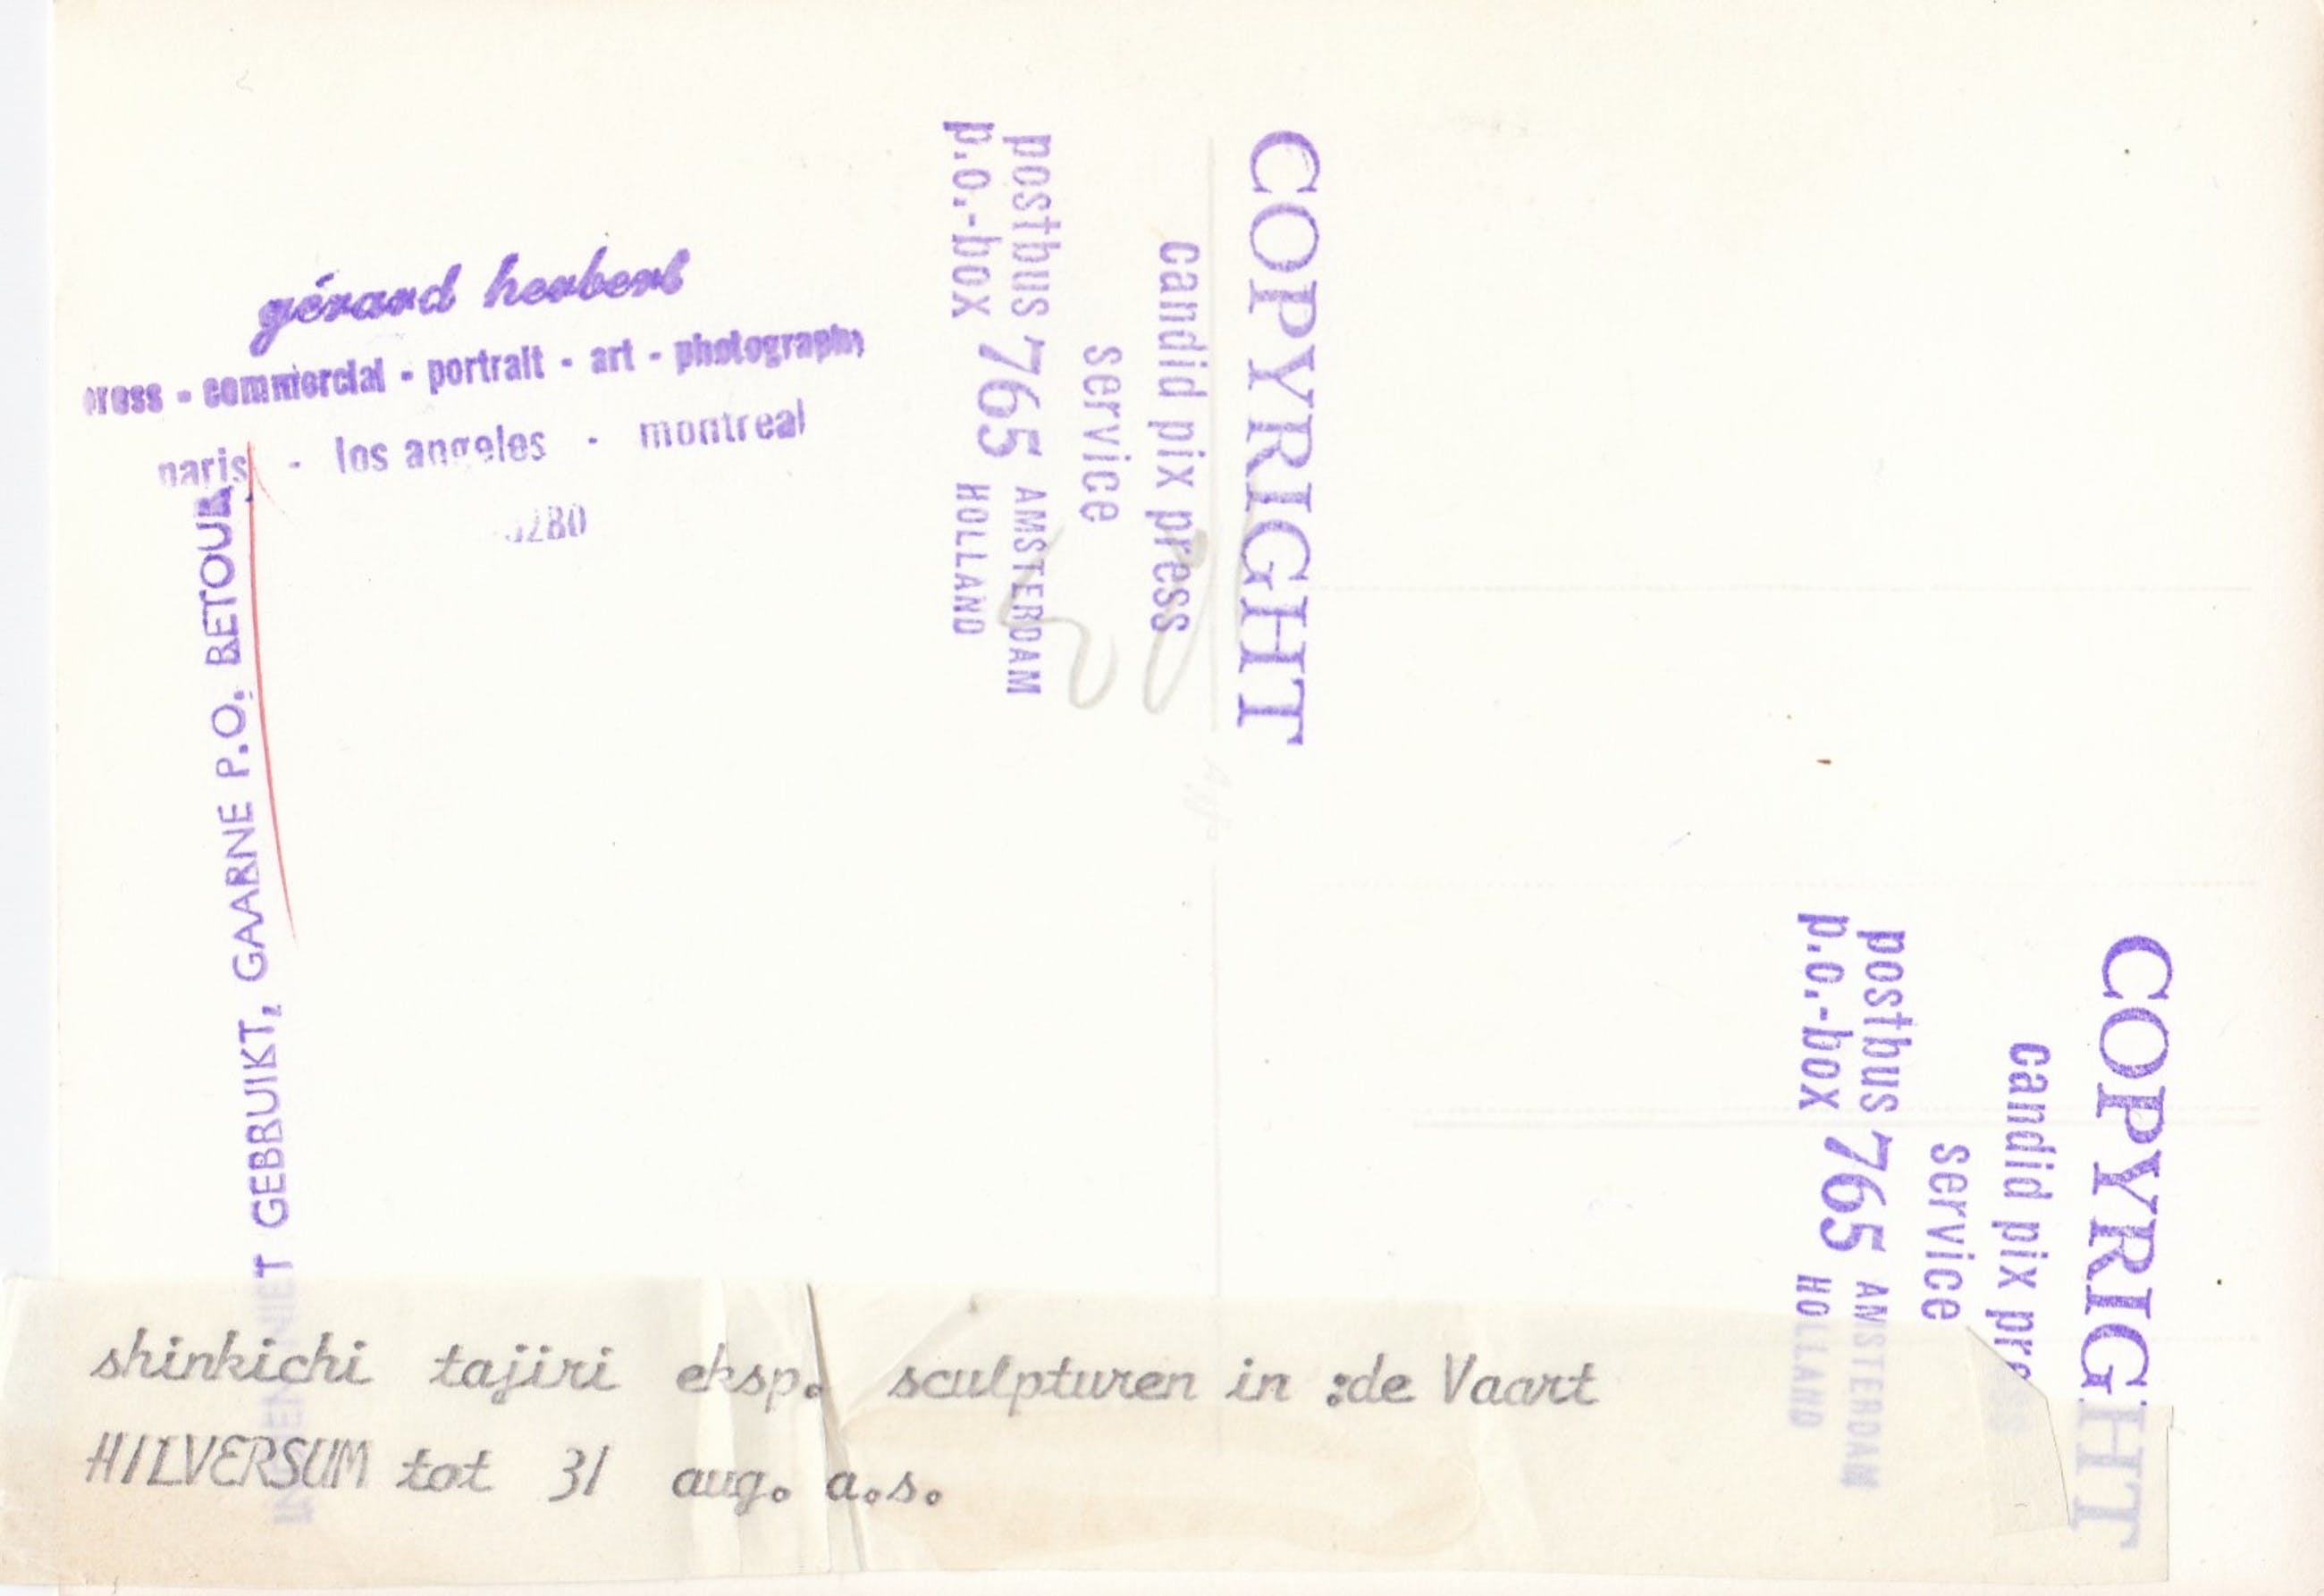 gérard herbert
press - commercial - portrait - art - photography
paris - los angeles - montreal
COPYRIGHT
candid pix press
service
postbus 765 AMSTERDAM
p.o.-box HOLLAND
INDIEN NIET GEBRUIKT, GAARNE P.O. RETOUR
COPYRIGHT
candid pix press
service
postbus 765 AMSTERDAM
p.o.-box HOLLAND
shinkichi tajiri eksp. sculpturen in :de Vaart
HILVERSUM tot 31 aug. a.s.